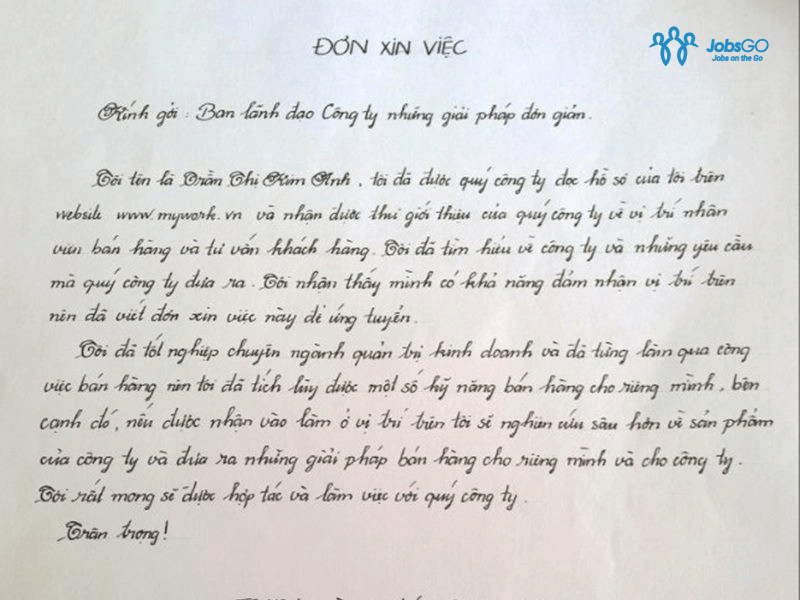 JobsGO
Jobs on the Go
ĐƠN XIN VIỆC
Kính gởi : Ban lãnh đạo Công ty những giải pháp đơn giản.
Tôi tên là Trần Thị Kim Anh, tôi đã được quý công ty đọc hồ sơ của tôi trên
website www.mywork.vn và nhận được thư giới thiệu của quý công ty về vị trí nhân
viên bán hàng và tư vấn khách hàng. Tôi đã tìm hiểu về công ty và những yêu cầu
mà quý công ty đưa ra. Tôi nhận thấy mình có khả năng đảm nhận vị trí trên
nên đã viết đơn xin việc này để ứng tuyển.
Tôi đã tốt nghiệp chuyên ngành quản trị kinh doanh và đã từng làm qua công
việc bán hàng nên tôi đã tích lũy được một số kỹ năng bán hàng cho riêng mình, bên
cạnh đó, nếu được nhận vào làm ở vị trí trên tôi sẽ nghiên cứu sâu hơn về sản phẩm
của công ty và đưa ra những giải pháp bán hàng cho riêng mình và cho công ty.
Tôi rất mong sẽ được hợp tác và làm việc với quý công ty.
Trân trọng!